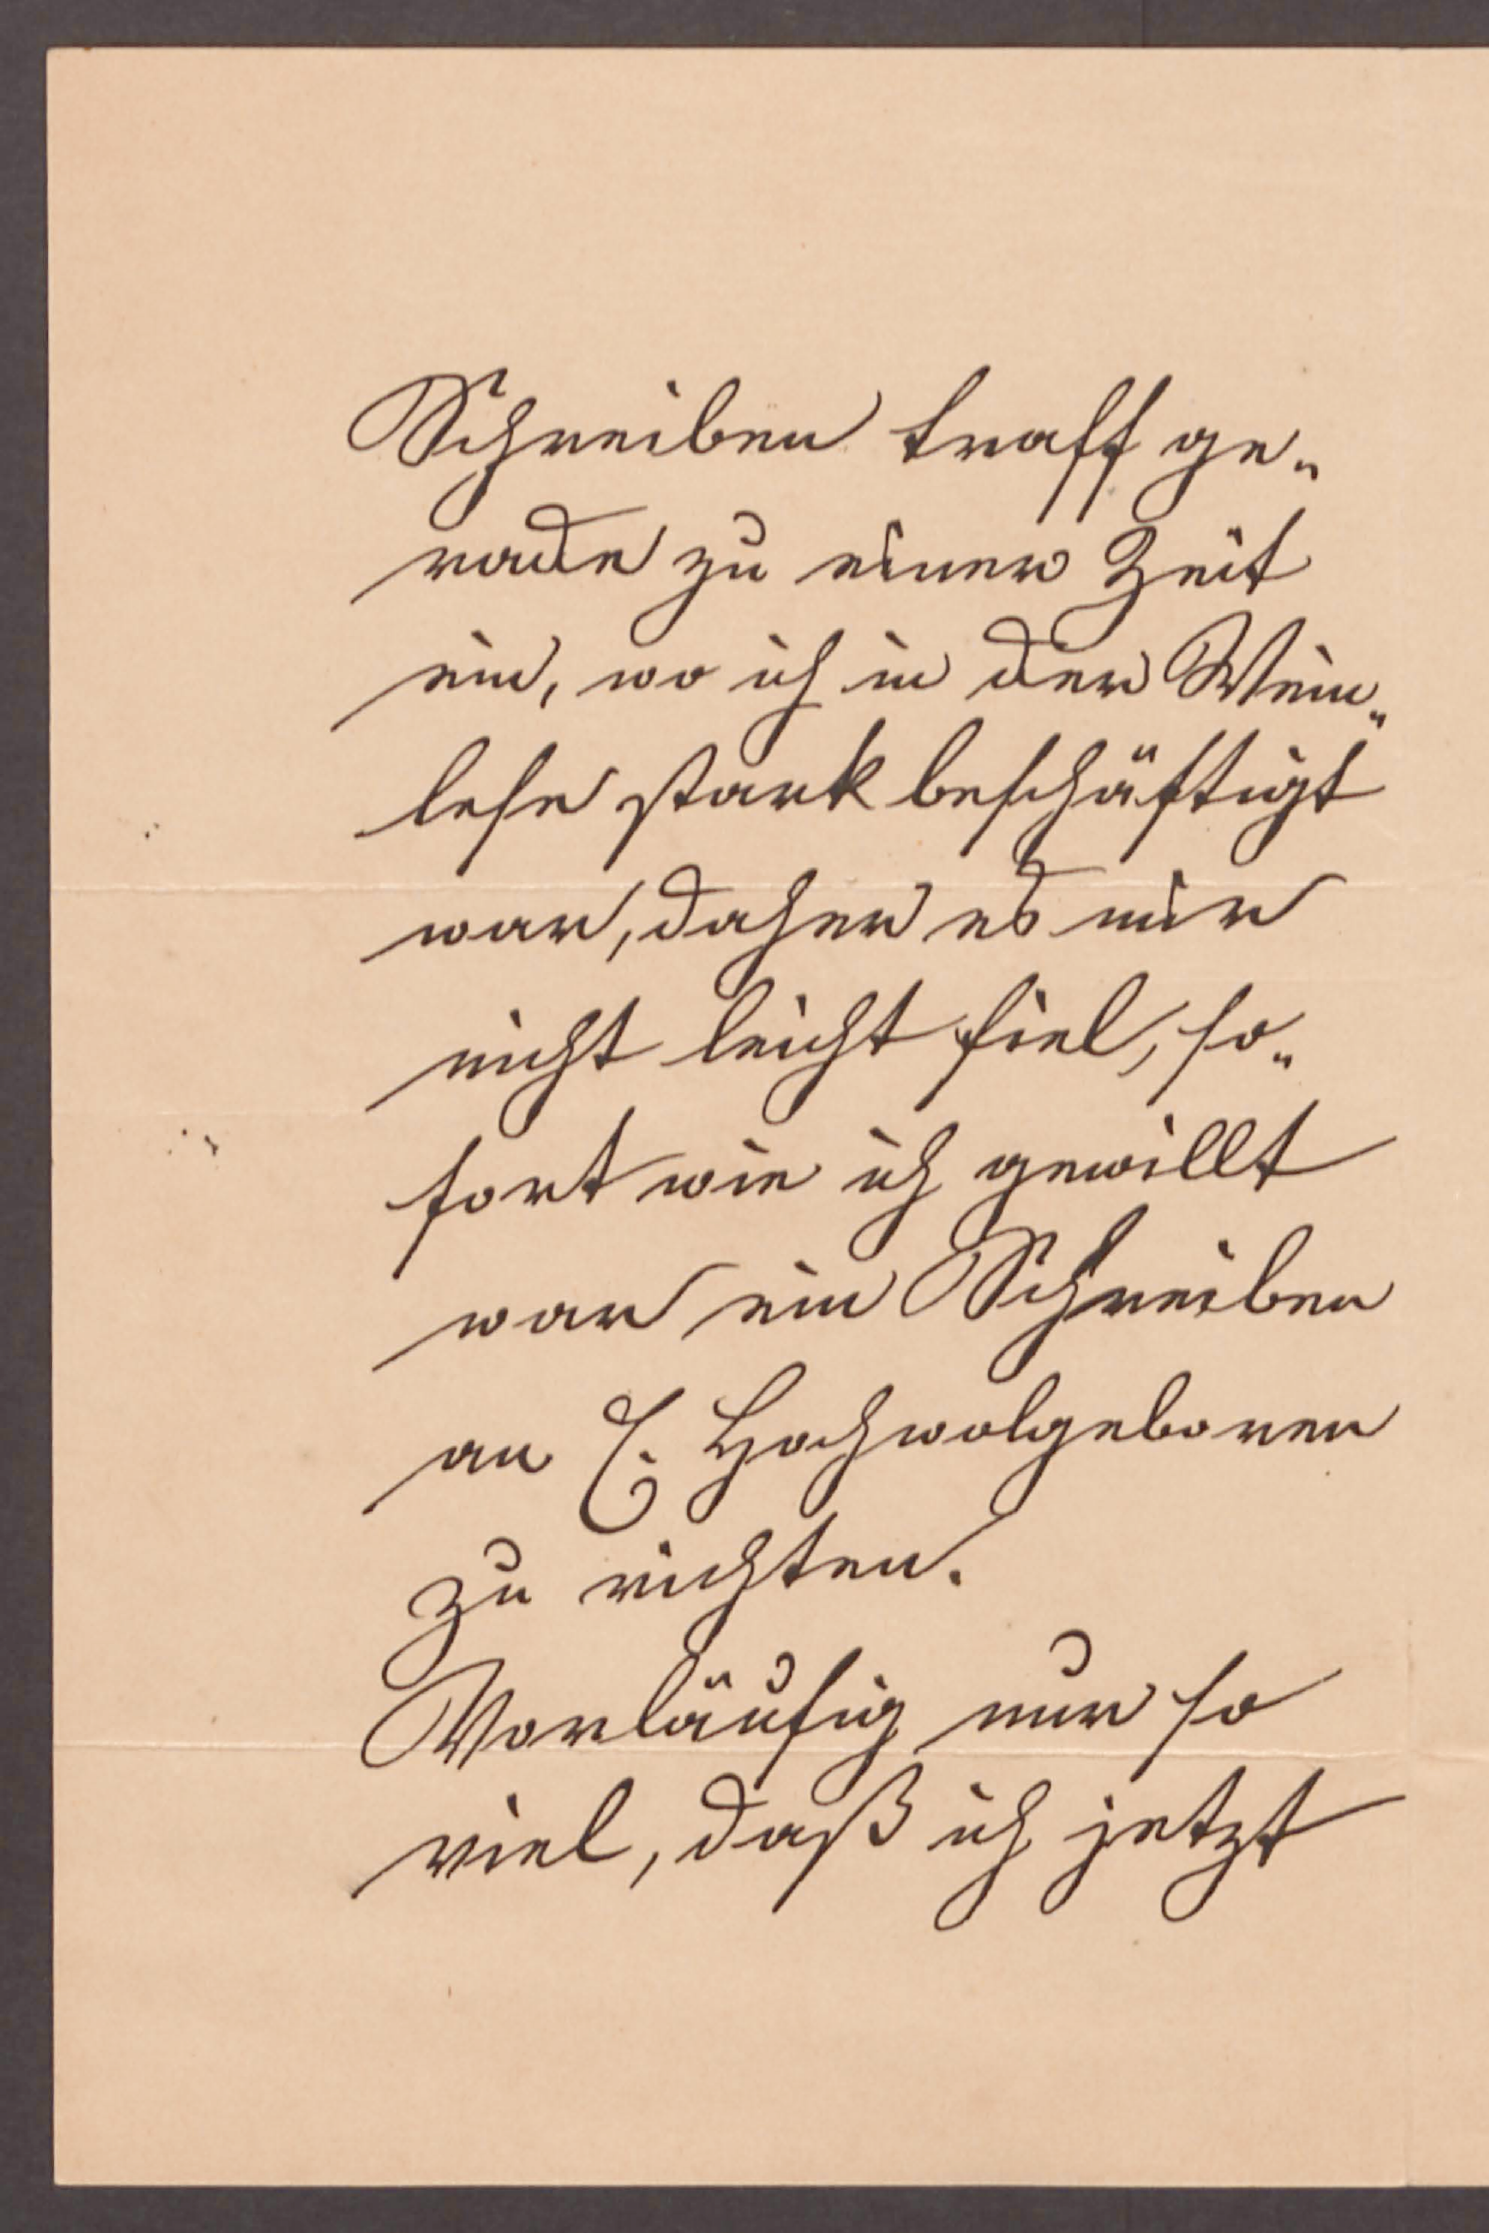 Schreiben traff ge„
rade zu einer Zeit
ein, wo ich in der Wein„
lese stark beschäftigt
war, daher es mir
nicht leicht fiel, so„
fort wie ich gewillt
war ein Schreiben
an E. Hochwolgeboren
zu richten.
Vorläufig nur so
viel, daß ich jetzt